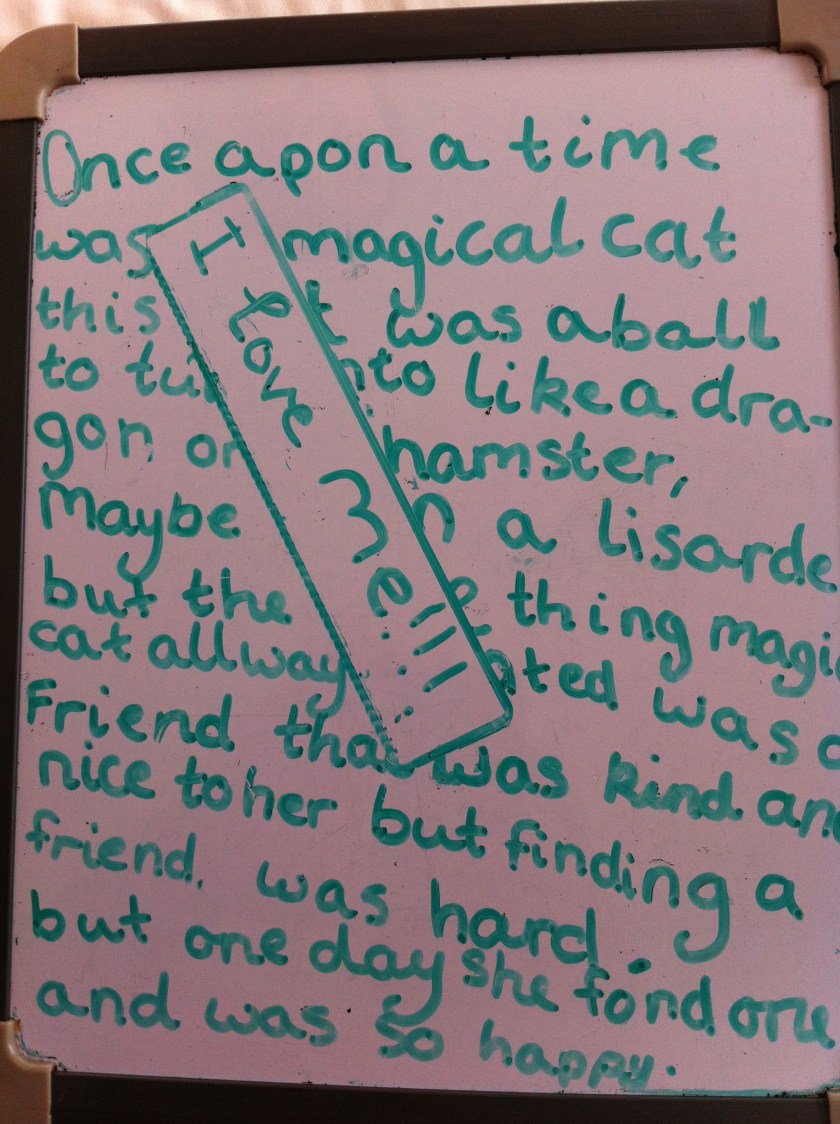 Once apon a time
was magical cat
this was a ball
to into like a dra-
gon or hamster,
maybe a lisarde
but the thing magic
cat allways was a
Friend that was kind and
nice to her but finding a
friend. was hard.
but one day she fond one
and was so happy.
I love me!!!